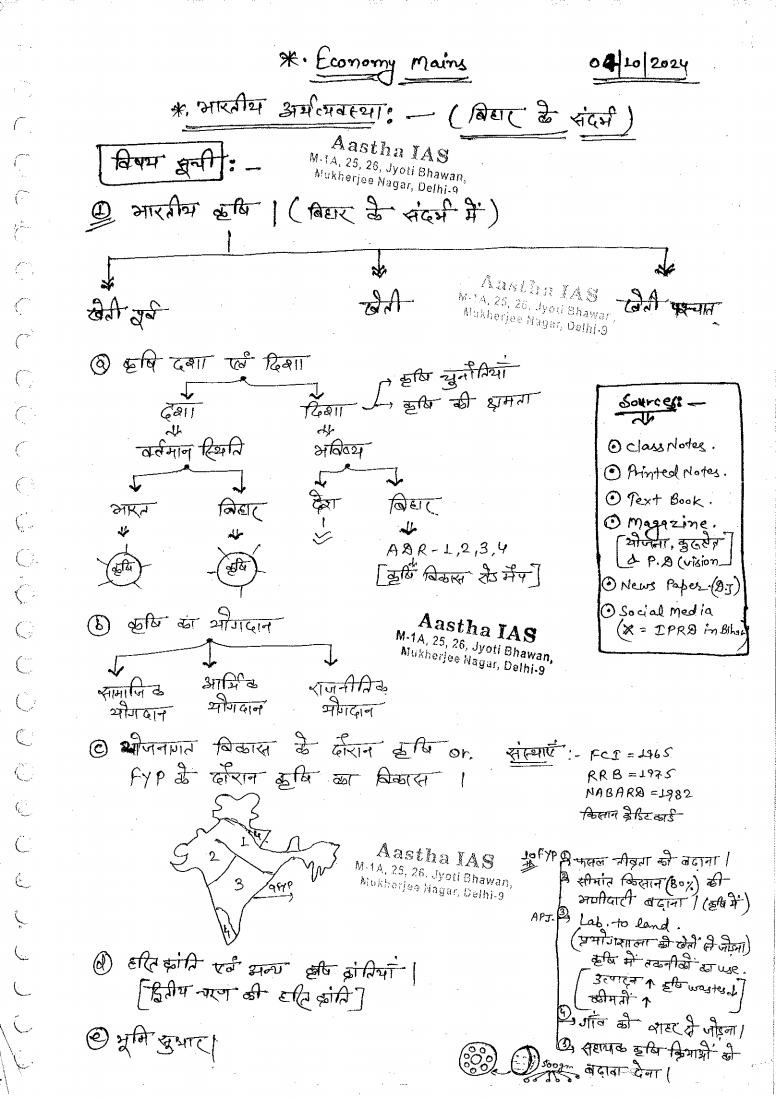 *. Economy Mains 04/10/2024
*. भारतीय अर्थव्यवस्था: — (बिहार के संदर्भ)
Aastha IAS
M-1A, 25, 26, Jyoti Bhawan,
Mukherjee Nagar, Delhi-9
विषय सूची : —
① भारतीय कृषि | (बिहार के संदर्भ में)
खेती पूर्व खेती खेती पश्चात्
Aastha IAS
M-1A, 25, 26, Jyoti Bhawan,
Mukherjee Nagar, Delhi-9
ⓐ कृषि दशा एवं दिशा
दशा दिशा → कृषि चुनौतियाँ
→ कृषि की क्षमता
वर्तमान स्थिति भविष्य
भारत बिहार देश बिहार
कृषि कृषि
ADR - 1,2,3,4
[कृषि विकास रोड मैप]
Sources: —
⊙ Class Notes.
⊙ Printed Notes.
⊙ Text Book.
⊙ Magazine.
[योजना, कुरुक्षेत्र
& P.D (vision]
⊙ News Paper-(DJ)
⊙ Social Media
(X = IPRD in Bihar)
ⓑ कृषि का योगदान
Aastha IAS
M-1A, 25, 26, Jyoti Bhawan,
Mukherjee Nagar, Delhi-9
सामाजिक योगदान
आर्थिक योगदान
राजनीतिक योगदान
ⓒ योजनागत विकास के दौरान कृषि or.
FYP के दौरान कृषि का विकास |
संस्थाएँ :- FCI = 1965
RRB = 1975
NABARD = 1982
किसान क्रेडिट कार्ड
1 2 3 4
Aastha IAS
M-1A, 25, 26, Jyoti Bhawan,
Mukherjee Nagar, Delhi-9
10 FYP ① फसल तीव्रता को बढ़ाना |
② सीमांत किसान (80%) की
भागीदारी बढ़ाना | (कृषि में)
APJ. ③ Lab. to land.
(प्रयोगशाला को खेतों से जोड़ना)
कृषि में तकनीकों का use.
[उत्पादन ↑ कृषि wastes↓
कीमतों ↑]
④ → गाँव को शहर से जोड़ना |
→ सहायक कृषि क्रियाओं को
बढ़ावा देना |
ⓓ हरित क्रांति एवं अन्य कृषि क्रांतियाँ |
[द्वितीय चरण की हरित क्रांति]
ⓔ भूमि सुधार |
500gm